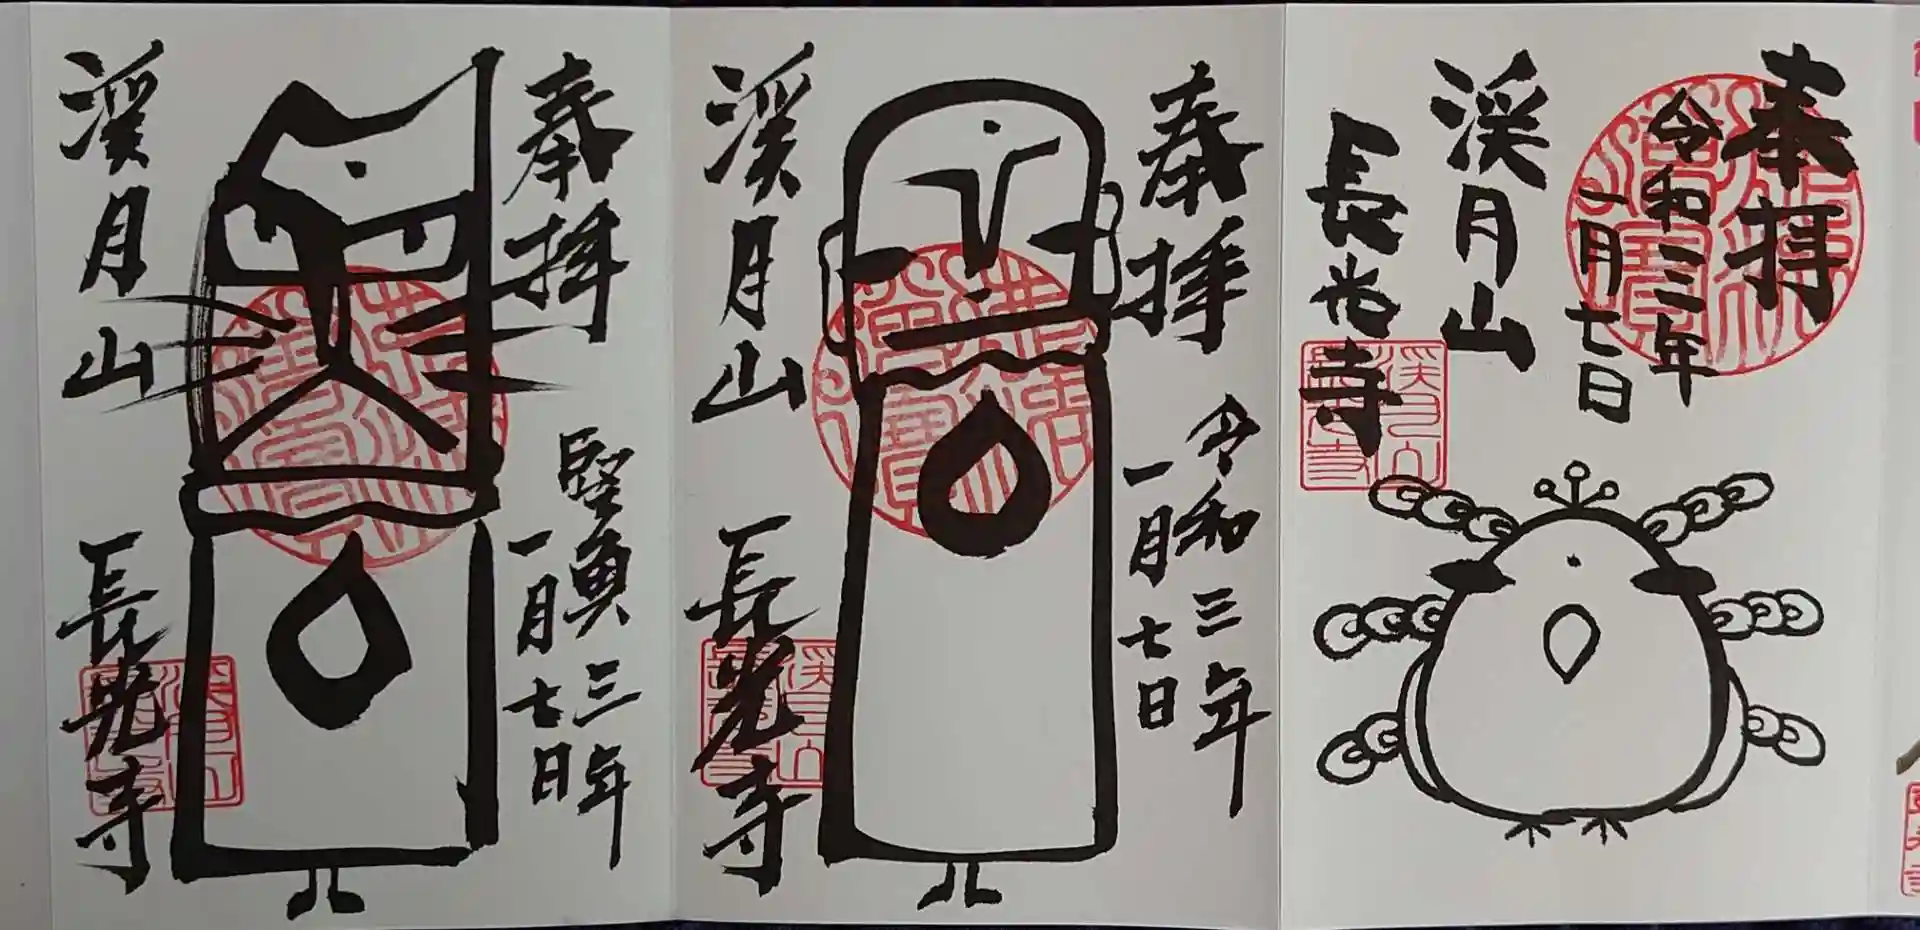 奉拝
令和三年
一月七日
渓月山
長光寺
奉拝
令和三年
一月七日
渓月山
長光寺
奉拝
堅魚三年
一月七日
渓月山
長光寺